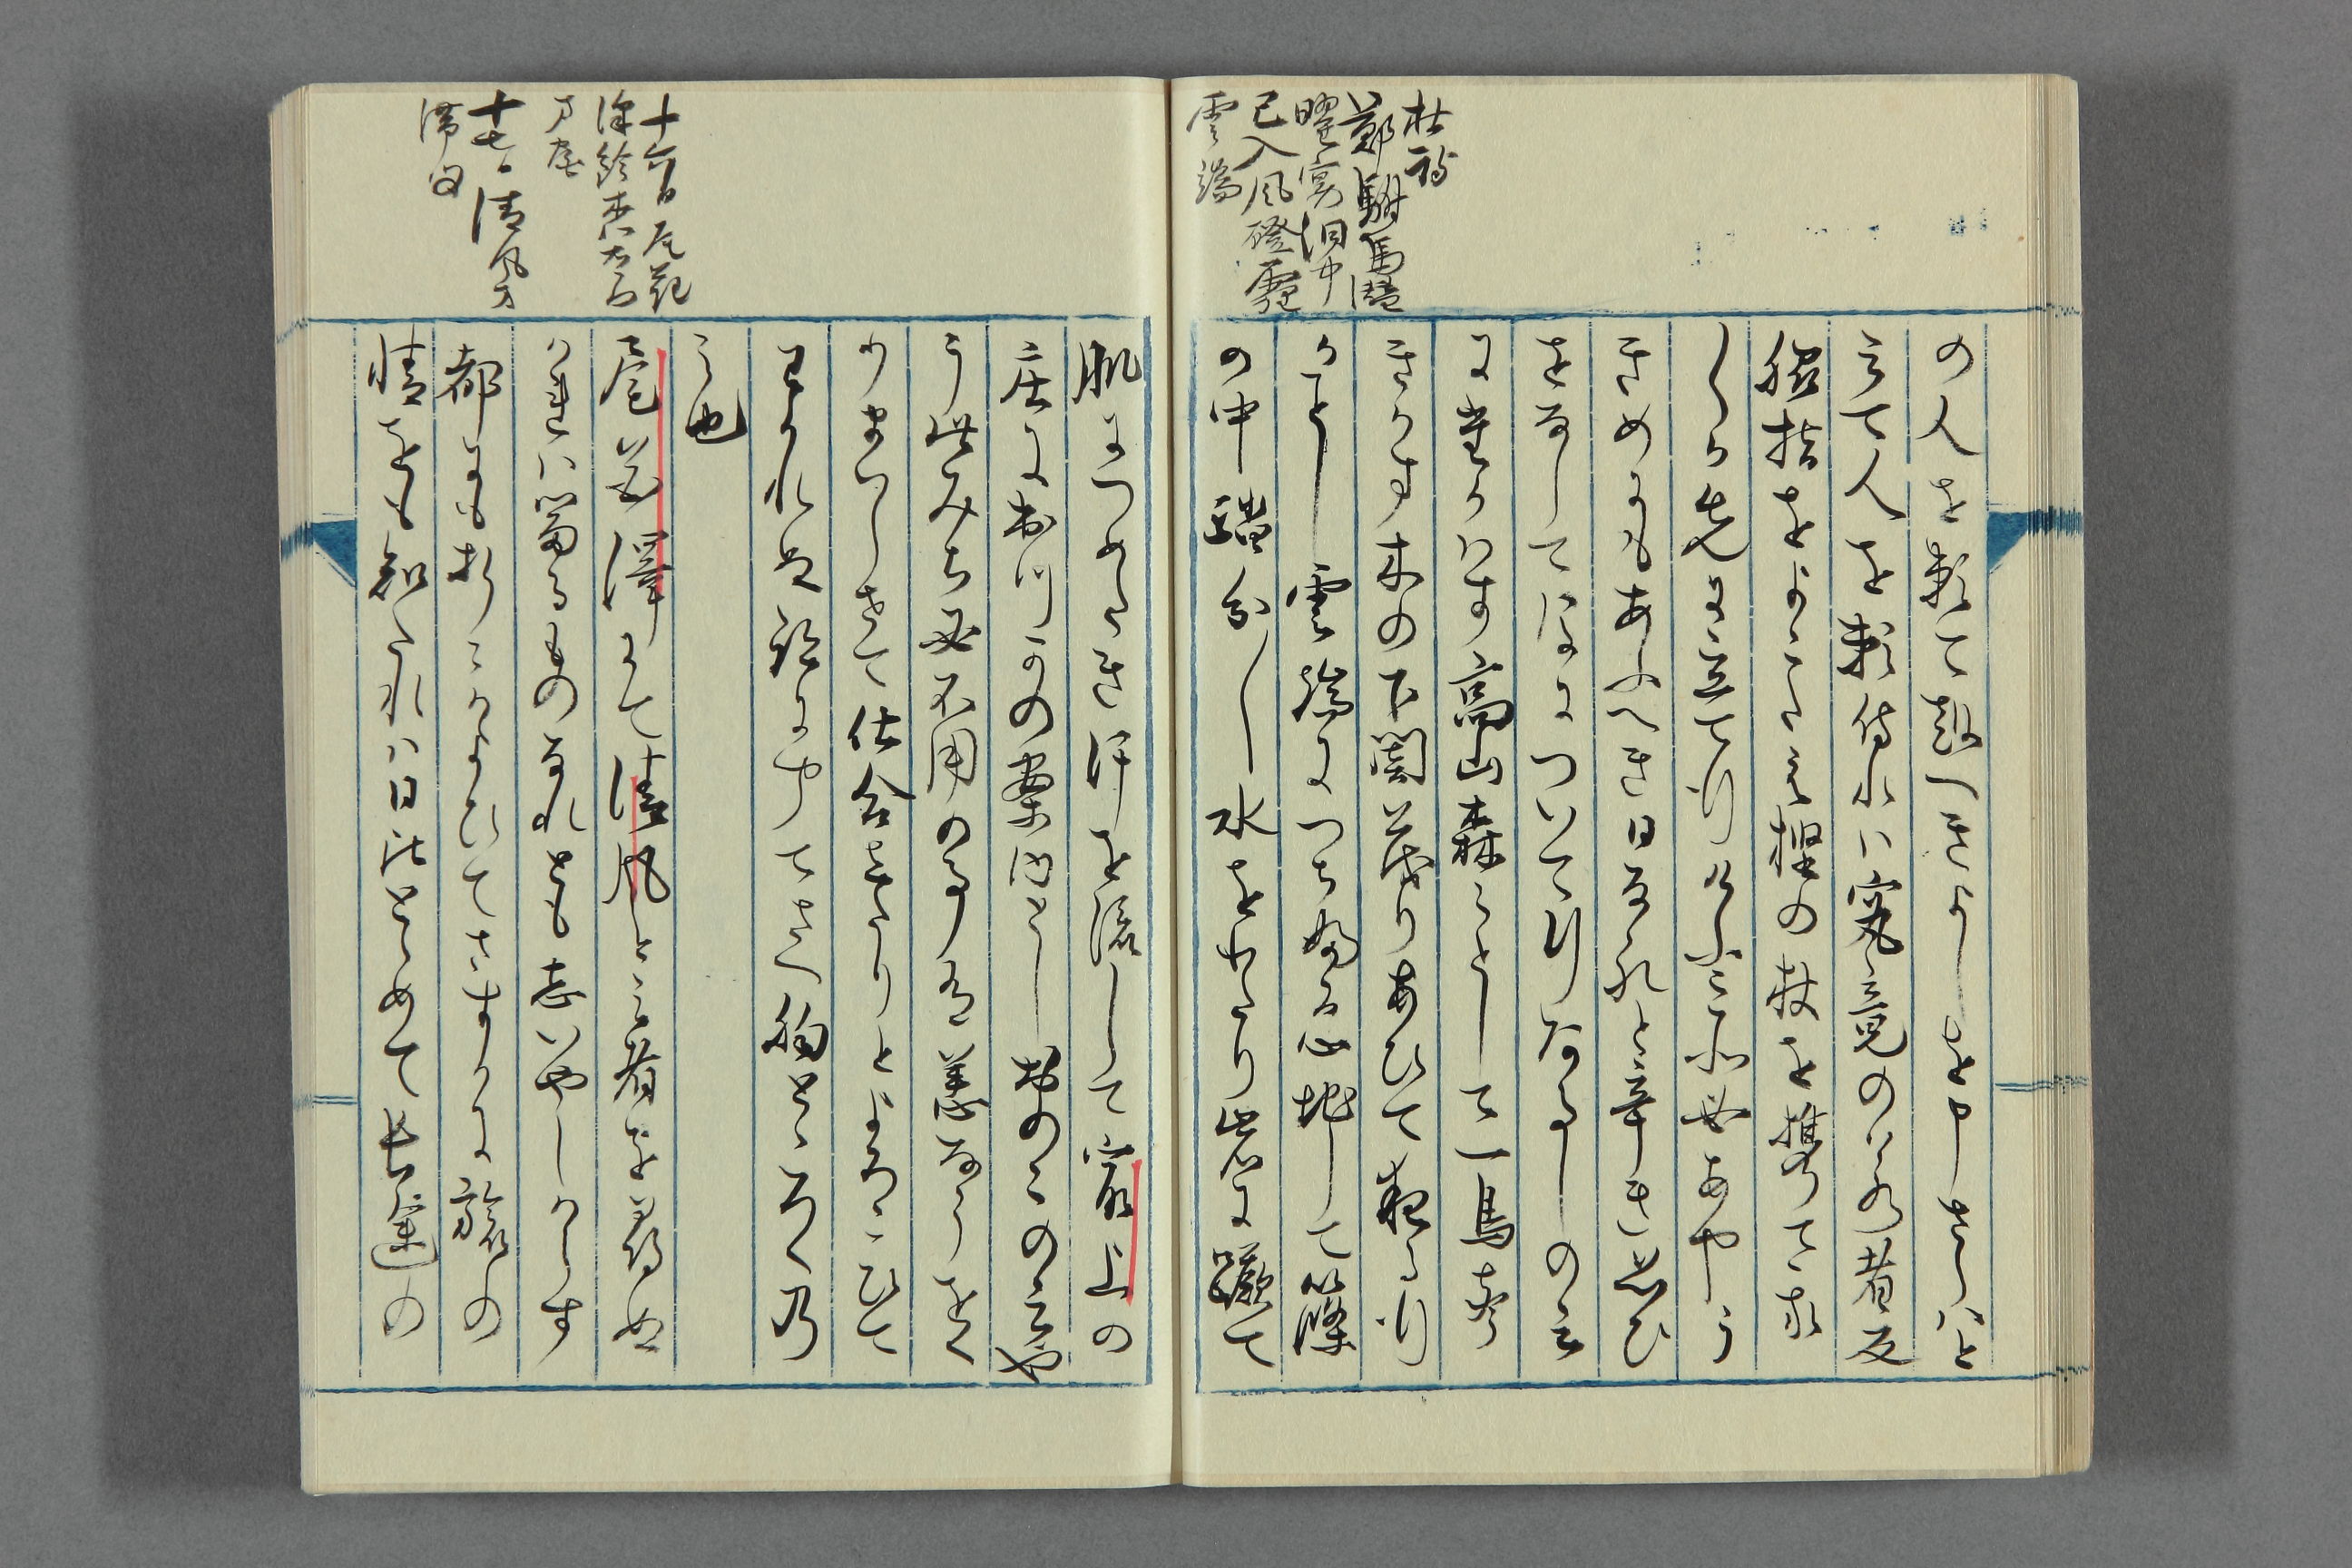 杜詩
鄭駙馬潜
曜宴洞中
已入風磴霾
雲端
の人を頼て越へきよしを申さらはと
云て人を頼侍れは究竟の若者反
脇指をよこたえ樫の杖を携て我
〳〵か先に立て行けふこそ必あやう
きめにもあふへき日なれと辛き思ひ
をなして後について行あるしの云
に違はす高山森〻として一鳥声
きかす木の下闇茂りあひて夜る行
かことし雲端につちふる心地して篠
の中踏分〳〵水をわたり岩に蹶て
肌につめたき汗を流して最上の
庄に出つかの案内せしおのこの云や
う此みち必不用の事有恙なうをく
りまいらせて仕合したりとよろこひて
わかれぬ跡に聞てさへ胸とゝろく乃
み也
十六日尾花
尾花澤にて清風と云者を尋ぬ
かれは富るものなれとも志いやしからす
都にも折〻かよひてさすかに旅の
情をも知たれは日比とゝめて長途の